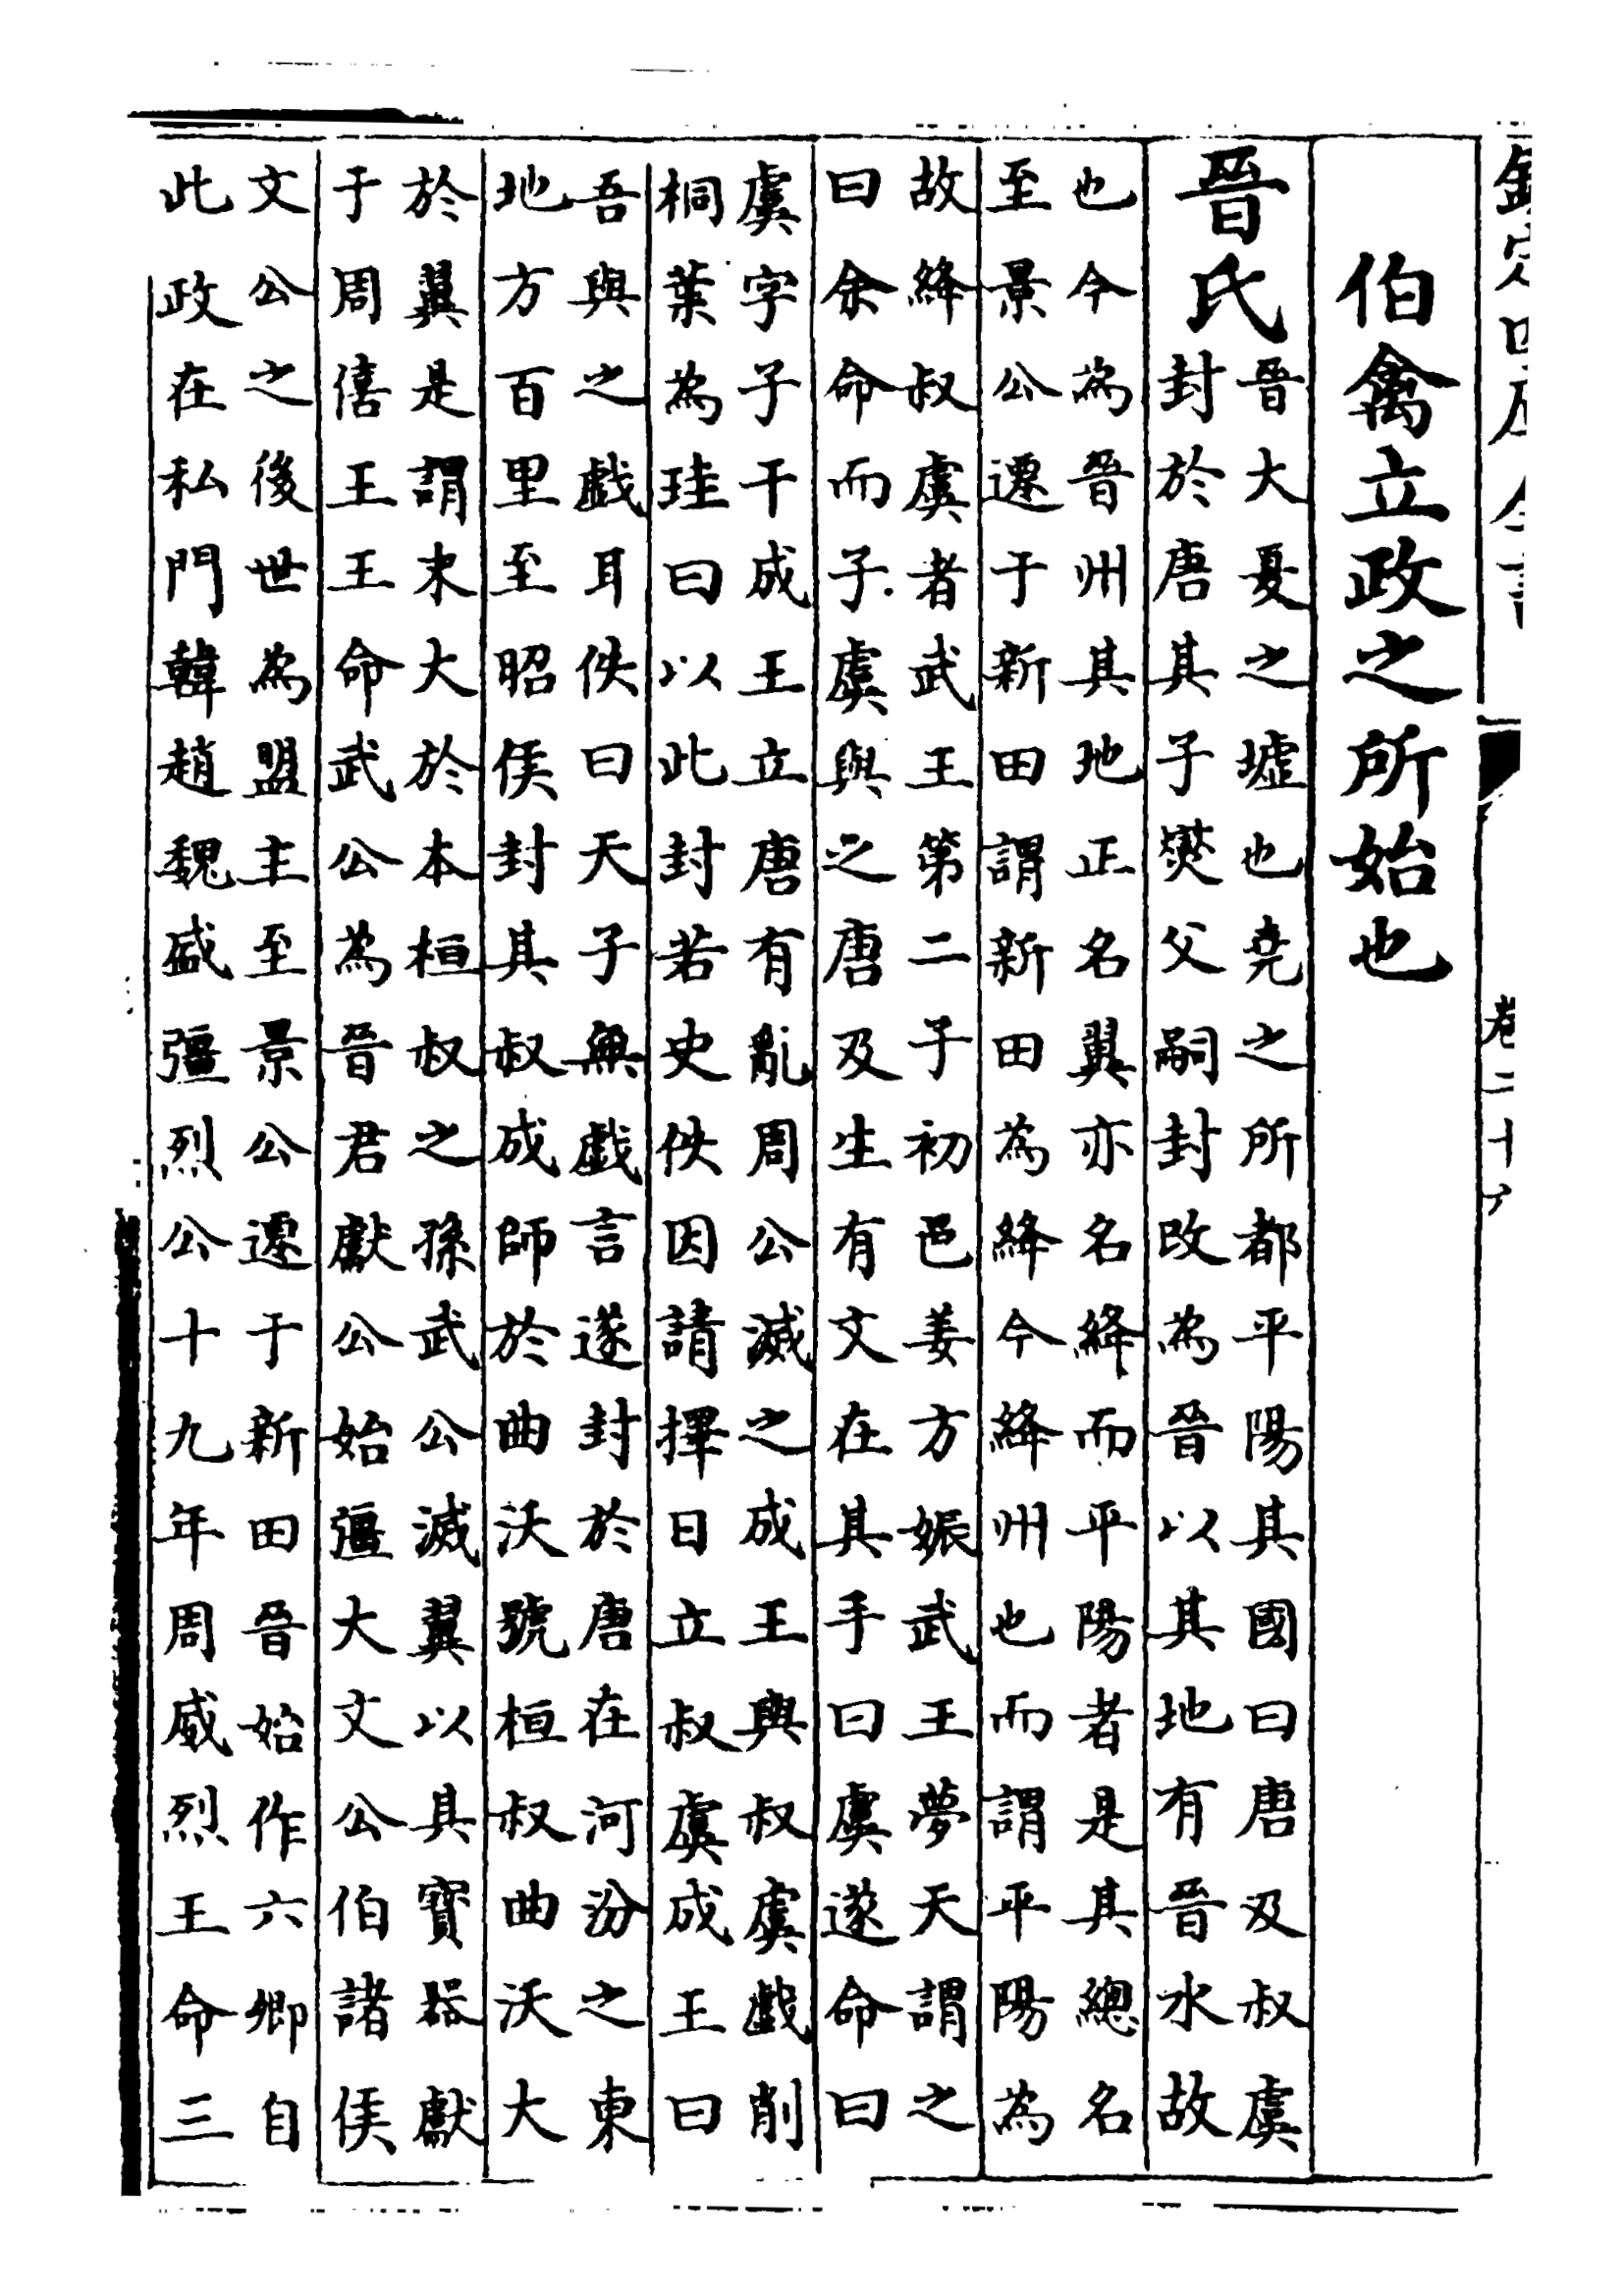 欽定四庫全書
卷二十六
伯禽立政之所始也
晉氏
晉大夏之墟也堯之所都平陽其國曰唐及叔虞
封於唐其子爕父嗣封改為晉以其地有晉水故
也今為晉州其地正名翼亦名絳而平陽者是其總名
至景公遷于新田謂新田為絳今絳州也而謂平陽為
故絳叔虞者武王第二子初邑姜方娠武王夢天謂之
曰余命而子虞與之唐及生有文在其手曰虞遂命曰
虞字子干成王立唐有亂周公滅之成王與叔虞戲削
桐葉為珪曰以此封若史佚因請擇日立叔虞成王曰
吾與之戲耳佚曰天子無戲言遂封於唐在河汾之東
地方百里至昭侯封其叔成師於曲沃號桓叔曲沃大
於翼是謂末大於本桓叔之孫武公滅翼以其寶器獻
于周僖王王命武公為晉君獻公始彊大文公伯諸侯
文公之後世為盟主至景公遷于新田晉始作六卿自
此政在私門韓趙魏盛彊烈公十九年周威烈王命三